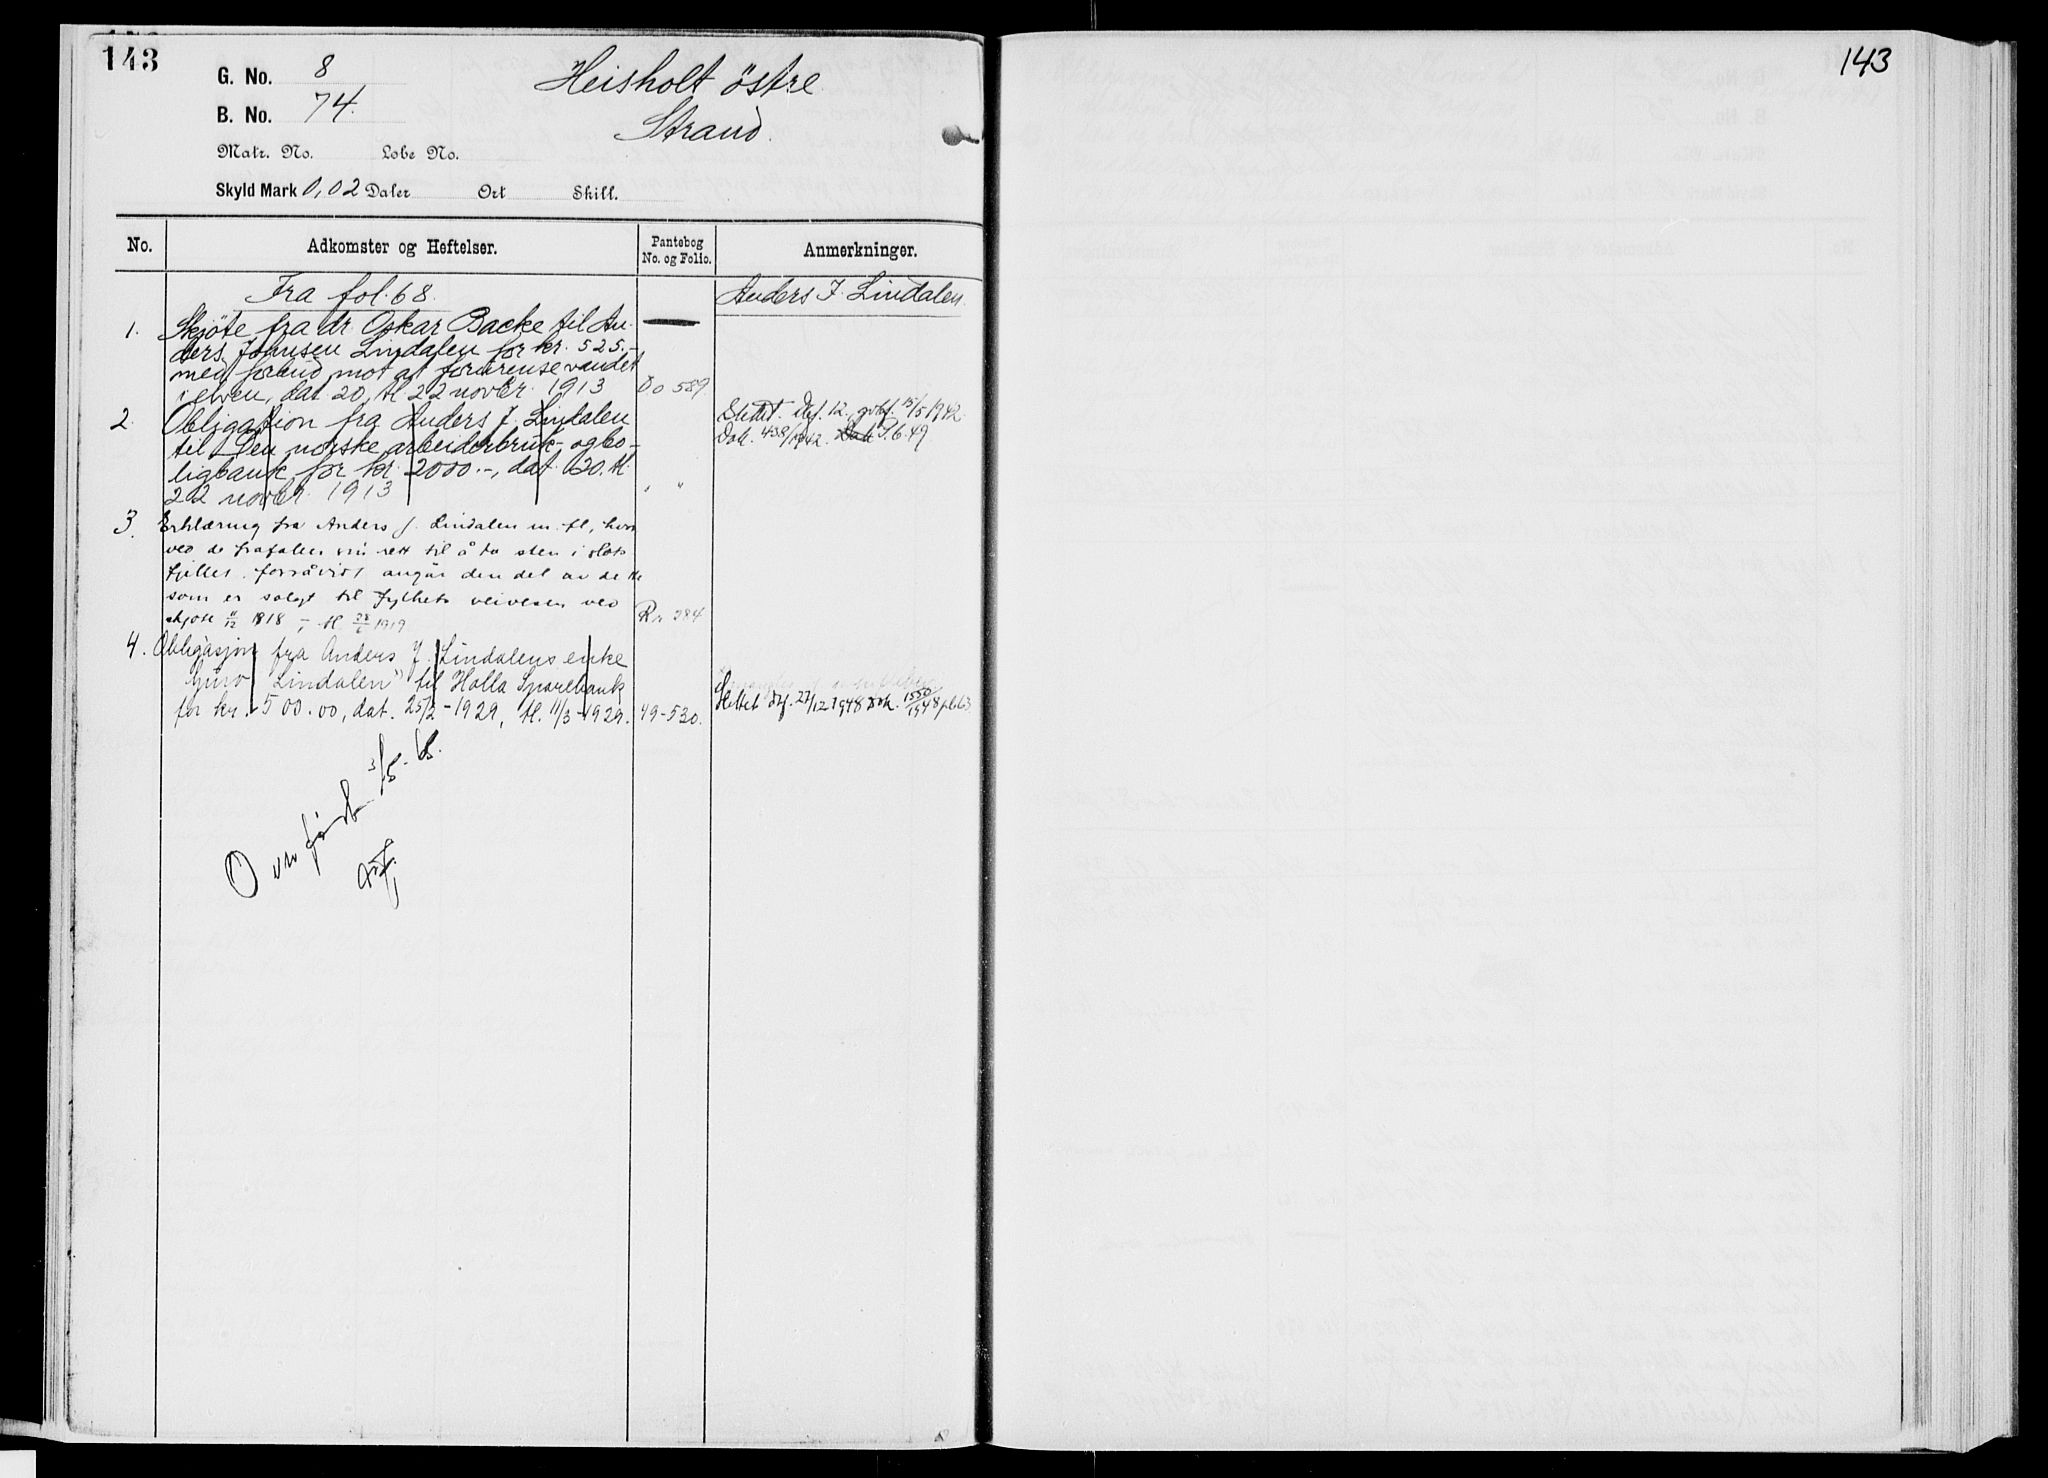 143
G. No. 8
B. No. 74.
Matr. No. Løbe No.
Skyld Mark 0,02 Daler Ort Skill.
Heisholt östre
Strand.
No. Adkomster og Heftelser. Pantebog No. og Folio. Anmerkninger.
Fra fol. 68. Anders J. Lindalen.
1. Skjöte fra dr. Oskar Backe til An-
ders Johnsen Lindalen for kr. 525.-
med forbud mot at forurense vandet
i elven, dat 20, tl 22 novbr. 1913 Do 589.
2. Obligation fra Anders J. Lindalen
til Den norske arbeiderbruk- og bo-
ligbank for kr. 2000.-, dat. 20. tl.
22 novbr. 1913 " "
Slettet. Def. 12. godf. 15/5 1942.
Dok. 438/1942. P.b. 49.
3. Erklæring fra Anders J. Lindalen m. fl, hvor
ved de frafaller sin rett til å ta sten i slots
fjellet, forsåvidt angår den del av dette
som er solgt til Fylkets veivesen ved
skjøte 11/12 1918 -, tl 28/6 1919 Rn 284
4. Obligasjon fra Anders J. Lindalens enke
Guro Lindalen til Holla Sparebank
for kr. 500.00, dat. 25/2-1929, tl. 11/3-1929. 49-530.
Slettet Def. 27/12 1948 Dok. 1550/1948 pb 63
Overført 3/5-68.
143